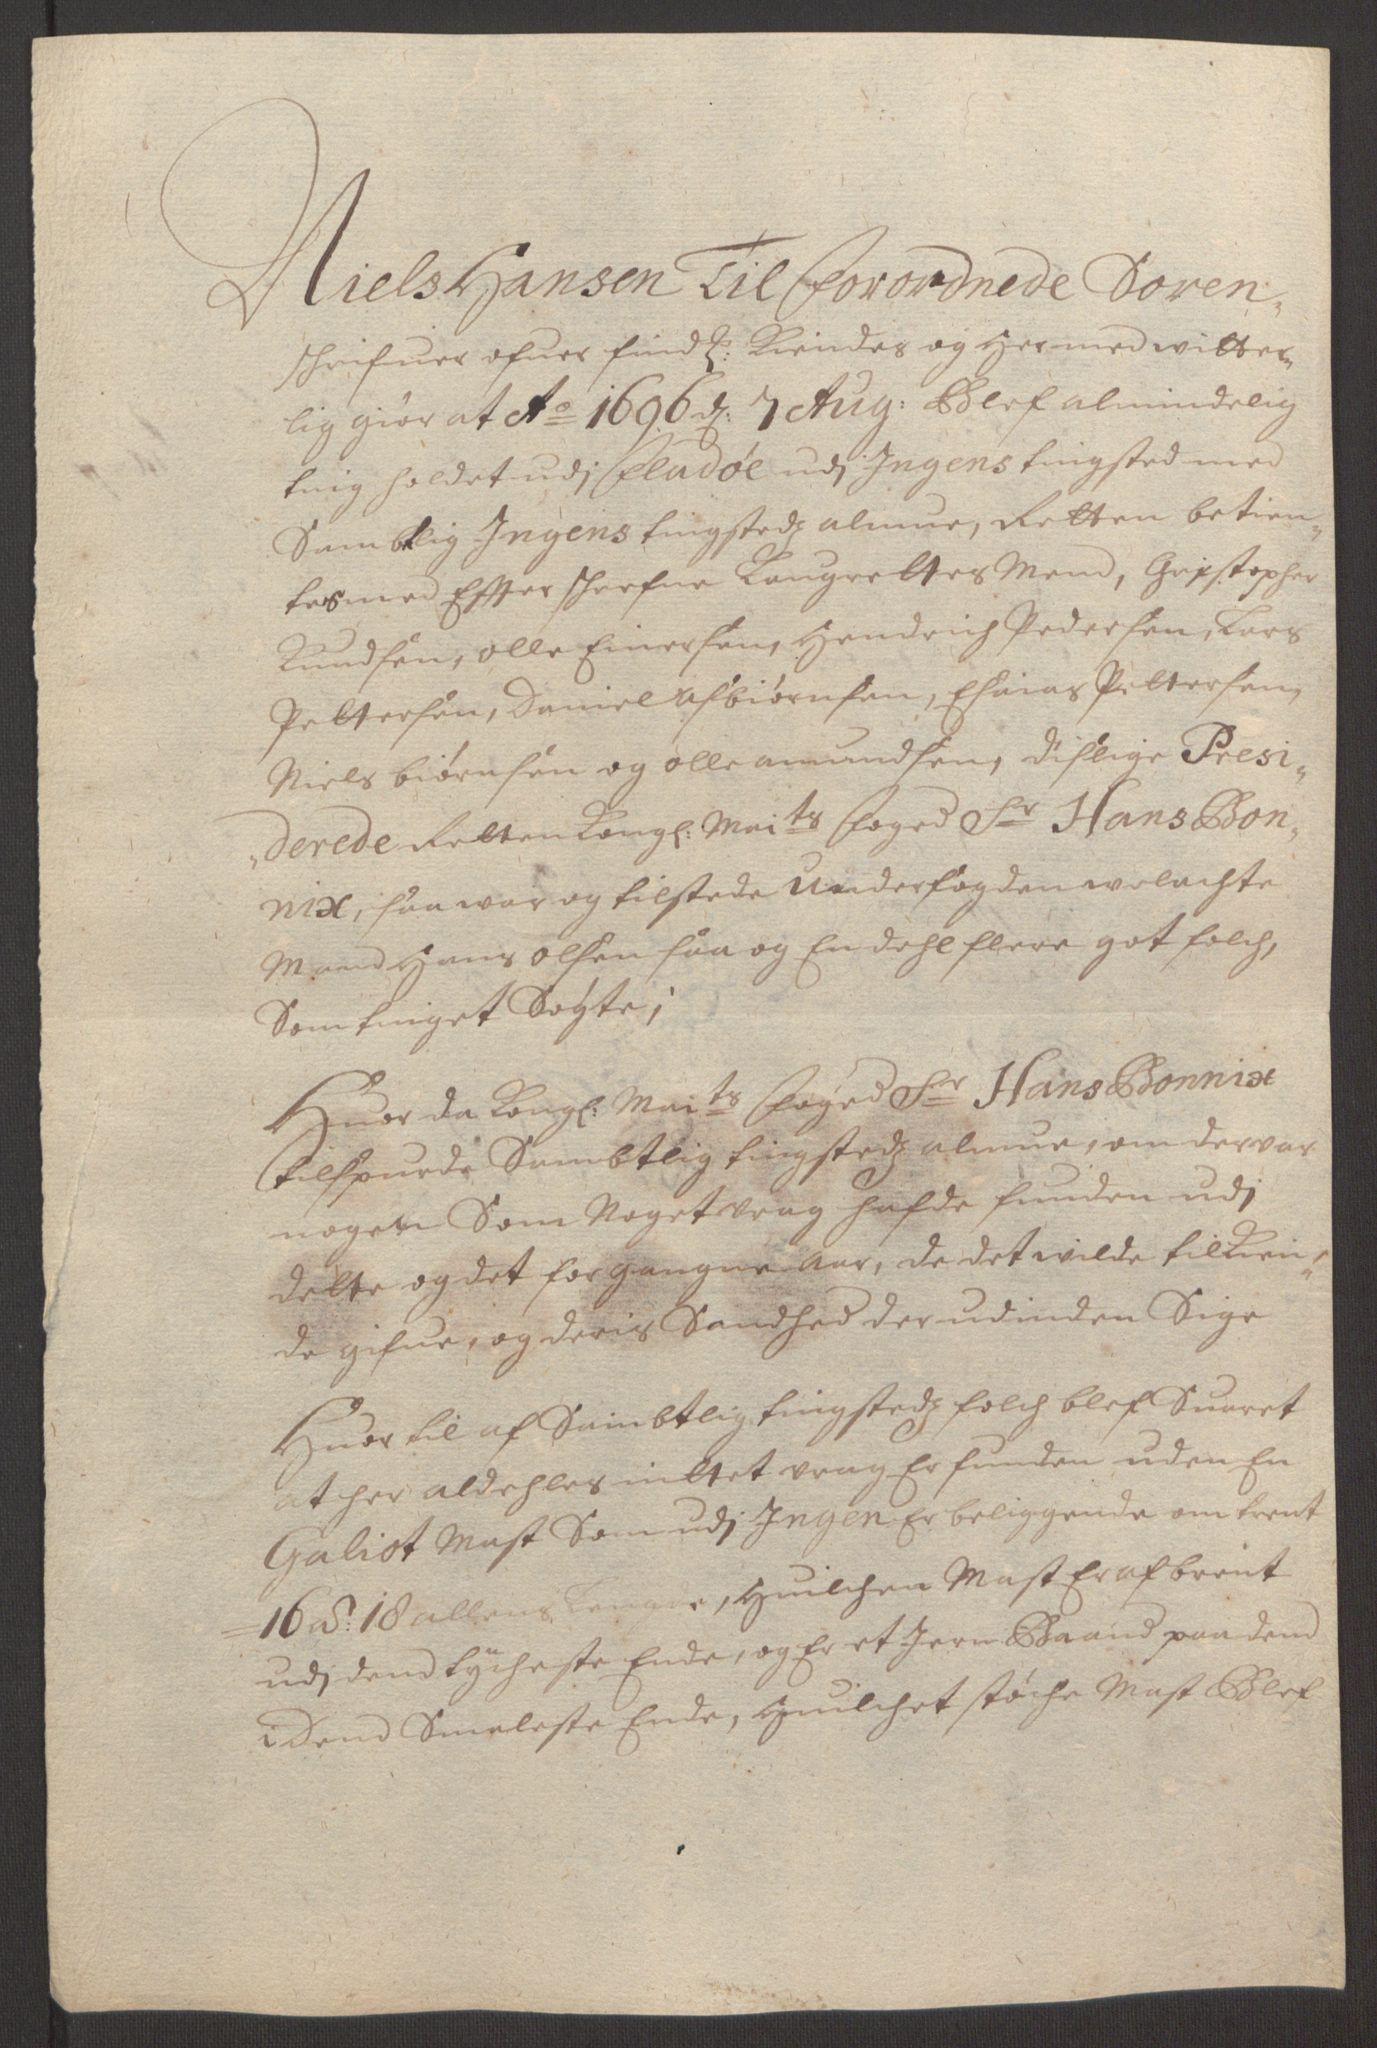 Niels Hansen Til forordnede Soren„
schrifuer ofuer find&: Kiendes og Hermed witter„
lig giør at Ao 1696 d: 7 Aug: Blef almindelig
ting holdet udj fladøe udj Ingens tingsted med
Sambtlig Ingens tingsteds almue, Retten betien„
tes med Effter schrefne Laugrettes Mend, Christopher
Kundsen, olle Einersen, Hendrich Pedersen, Lars
Pettersen, Daniel Asbiørnsen, Esaias Pettersen,
Niels biørnsen og olle amundsen, dislige Presi„
„derede Retten Kongl: Maits foged Sr Hans Bon„
nix, saa war og tilstede Underfogden welachte
Mand Hans olsen saa og En dehl flere got folch,
Som tinget Søgte;
Huor da Kongl: Maits foged Sr Hans Bonnix
tilspurde Sambtlig tingsteds almue, om der var
nogen Som Noget vrag hafde funden udj
dette og det forgangne Aar, de det wilde tilkien„
de gifue, og deris Sandhed der udinden Sige
Huor til af Sambtlig tingsteds folch blef Suaret
at her aldehles inttet vrag Er funden uden En
Galiot Mast Som udj Ingen Er beliggende omtrent
16 a: 18 allens Lengde, Huilchen Mast Er afbrent
udj dend tycheste Ende, og Er et Jern Baand paa dend
i Dend Smaleste Ende, Huilchet støche Mast Blef